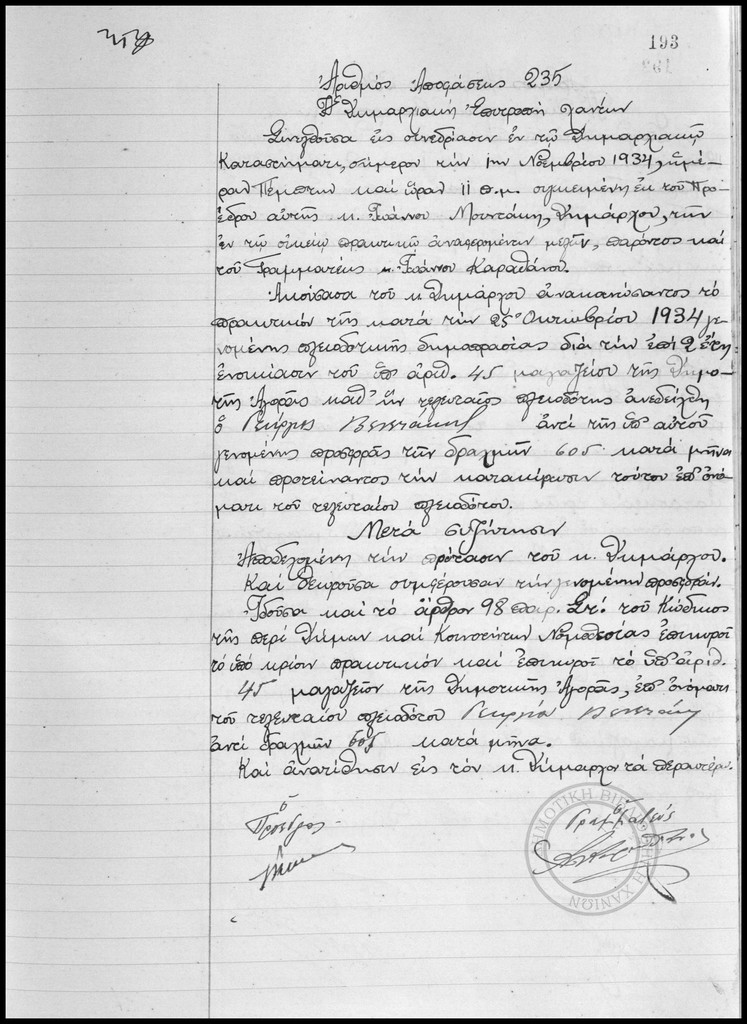 193
Ἀριθμὸς Ἀποφάσεως 235
Ἡ Δημαρχιακὴ Ἐπιτροπὴ Χανίων
Συνελθοῦσα εἰς συνεδρίασιν ἐν τῷ Δημαρχιακῷ
Καταστήματι, σήμερον τὴν 1ην Νοεμβρίου 1934, ἡμέ-
ραν Πέμπτην καὶ ὥραν 11 π.μ. συγκειμένη ἐκ τοῦ Προ-
έδρου αὐτῆς κ. Ἰωάννου Μουντάκη, Δημάρχου, τῶν
ἐν τῷ οἰκείῳ πρακτικῷ ἀναφερομένων μελῶν, παρόντος καὶ
τοῦ Γραμματέως κ. Ἰωάννου Καραθάνου.
Ἀκούσασα τοῦ κ. Δημάρχου ἀνακοινώσαντος τὸ
πρακτικὸν τῆς κατὰ τὴν 25 Ὀκτωβρίου 1934 γε-
νομένης πλειοδοτικῆς δημοπρασίας διὰ τὴν ἐπὶ 2 ἔτη
ἐνοικίασιν τοῦ ὑπ' ἀριθ. 45 μαγαζείου τῆς Δημο-
τῆς Ἀγορᾶς καθ' ἣν τελευταῖος πλειοδότης ἀνεδείχθη
ὁ Γεώργιος Βενετάκης ἀντὶ τῆς ὑπ' αὐτοῦ
γενομένης προσφορᾶς τῶν δραχμῶν 605 κατὰ μῆνα
καὶ προτείναντος τὴν κατακύρωσιν τούτου ἐπ' ὀνό-
ματι τοῦ τελευταίου πλειοδότου.
Μετὰ συζήτησιν
Ἀποδεχομένη τὴν πρότασιν τοῦ κ. Δημάρχου.
Καὶ θεωροῦσα συμφέρουσαν τὴν γενομένην προσφοράν.
Ἰδοῦσα καὶ τὸ ἄρθρον 98 παρ. Στ. τοῦ Κώδικος
τῆς περὶ Δήμων καὶ Κοινοτήτων Νομοθεσίας ἐπικυροῖ
τὸ ὑπὸ κρίσιν πρακτικὸν καὶ ἐπικυροῖ τὸ ὑπ' ἀριθ.
45 μαγαζεῖον τῆς Δημοτικῆς Ἀγορᾶς, ἐπ' ὀνόματι
τοῦ τελευταίου πλειοδότου Γεωργίου Βενετάκη
ἀντὶ δραχμῶν 605 κατὰ μῆνα.
Καὶ ἀνατίθησιν εἰς τὸν κ. Δήμαρχον τὰ περαιτέρω.
Ὁ Πρόεδρος
Ὁ Γραμματεύς
ΔΗΜΟΤΙΚΗ ΒΙΒΛΙΟΘΗΚΗ ΧΑΝΙΩΝ